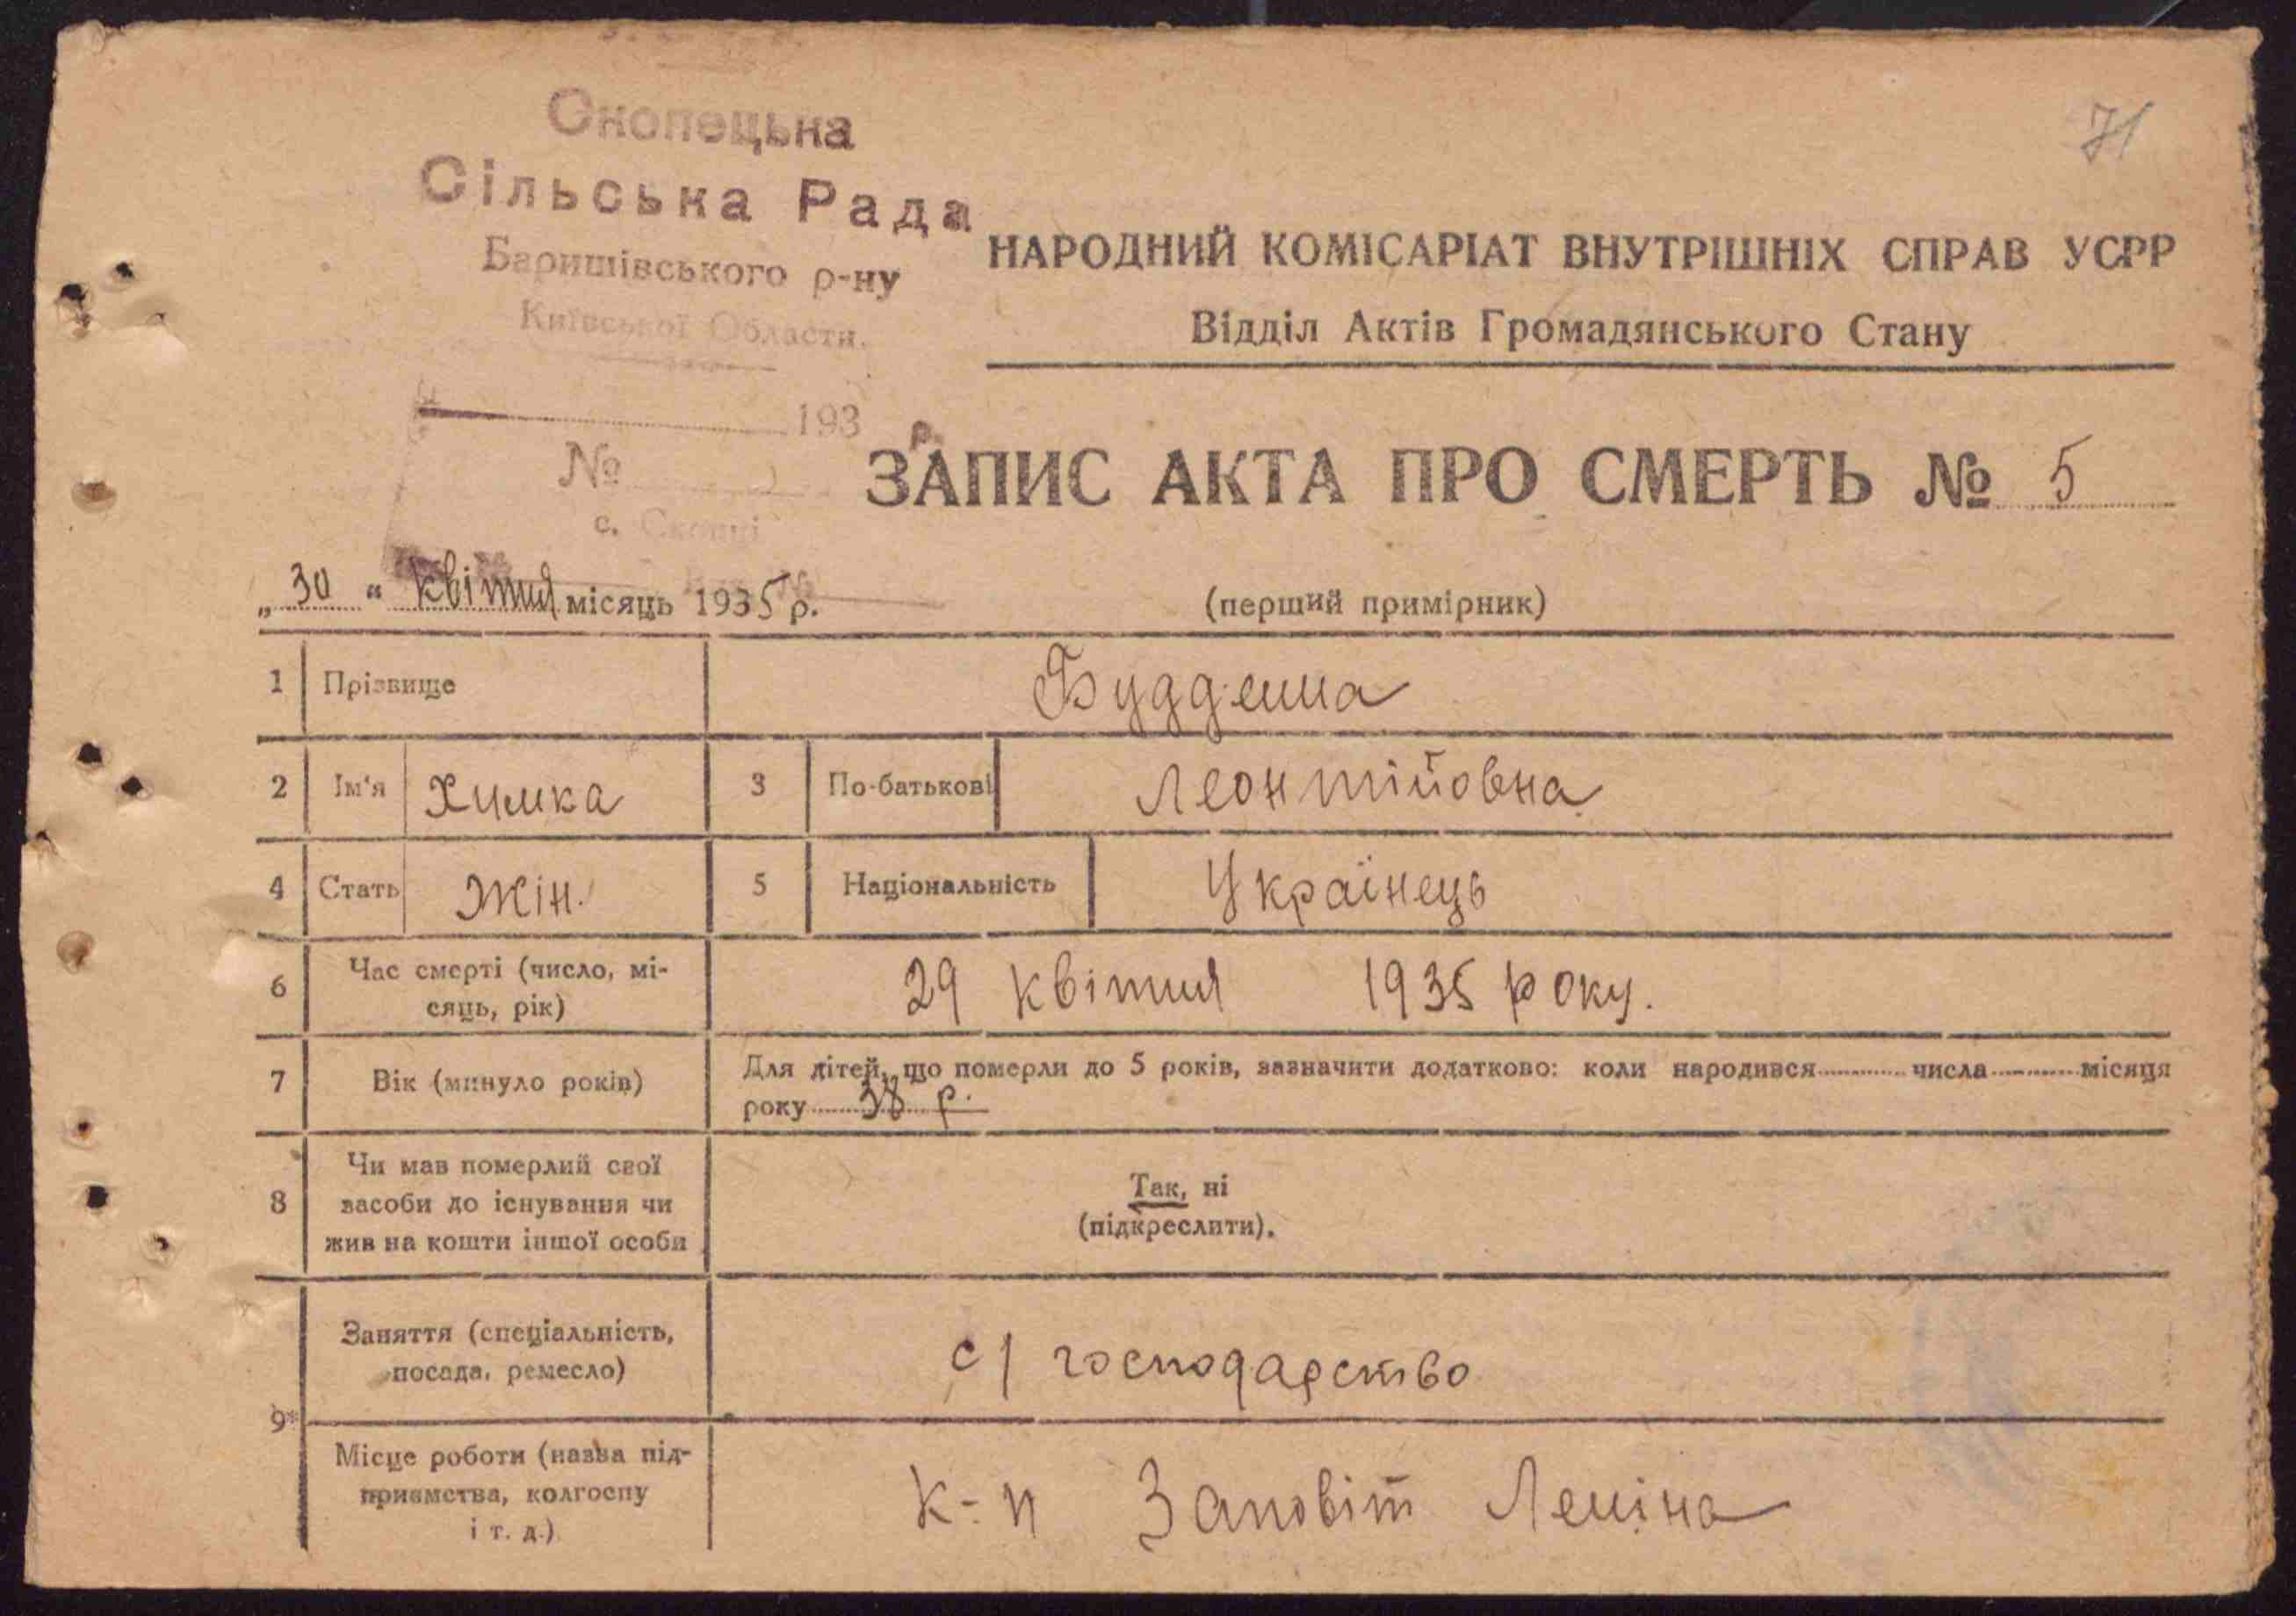 71
Скопецька
Сільська Рада
Баришівського р-ну
Київської Области.
НАРОДНИЙ КОМІСАРІАТ ВНУТРІШНІХ СПРАВ УСРР
Відділ Актів Громадянського Стану
193 р.
№
с. Скопці
ЗАПИС АКТА ПРО СМЕРТЬ № 5
„30“ квітня місяць 1935 р.
(перший примірник)
1 Прізвище Будденна
2 Ім'я Химка 3 По-батькові Леонтійовна
4 Стать Жін. 5 Національність Українець
6 Час смерті (число, мі-
сяць, рік) 29 квітня 1935 року.
7 Вік (минуло років) Для дітей, що померли до 5 років, зазначити додатково: коли народився числа місяця
року 38 р.
8 Чи мав померлий свої
засоби до існування чи
жив на кошти іншої особи
Так, ні
(підкреслити).
9* Заняття (спеціальність,
посада, ремесло) с/господарство
Місце роботи (назва під-
приємства, колгоспу
і т. д.)
к-п Заповіт Леніна